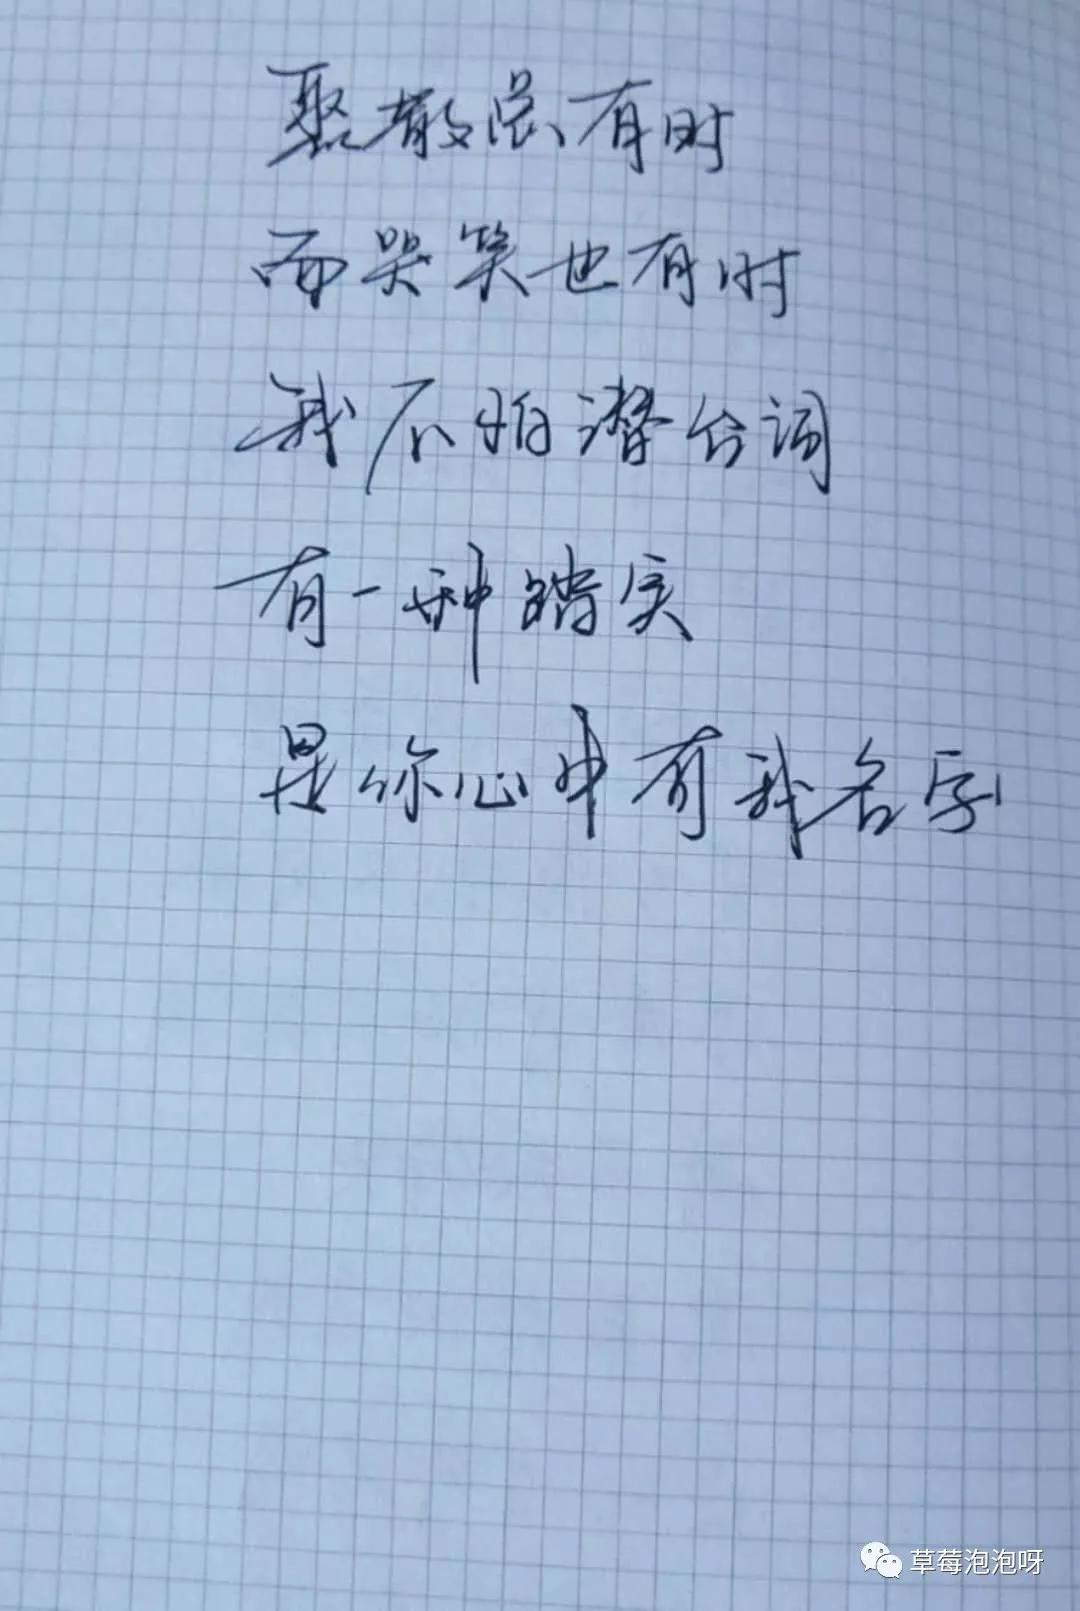 聚散总有时
而哭笑也有时
我不怕潜台词
有一种踏实
是你心中有我名字
草莓泡泡呀